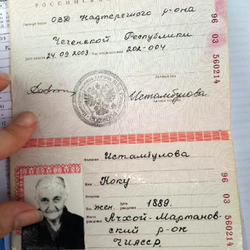 РОССИЙСК
ОВД Надтеречного р-она
Чеченской Республики
24.09.2003
202-004
Истамбулова
96 03 560214
Фамилия
Истамбулова
Имя
Коку
жен.
1889.
Ачхой-Мартанов-
ский р-он
ЧИАССР.
96 03 560214